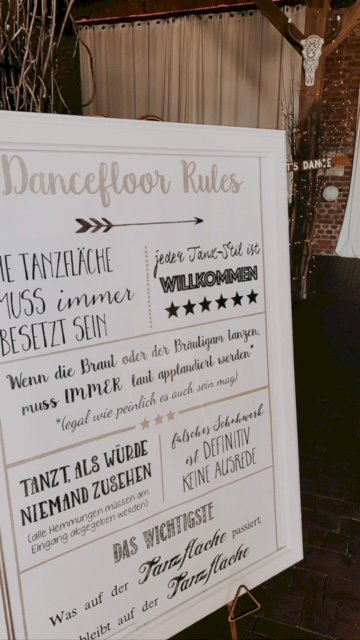 Dancefloor Rules
IE TANZFLÄCHE
MUSS immer
BESETZT SEIN
jeder Tanz-Stil ist
WILLKOMMEN
Wenn die Braut oder der Bräutigam tanzen,
muss IMMER laut applaudiert werden*
*(egal wie peinlich es auch sein mag)
TANZT, ALS WÜRDE
NIEMAND ZUSEHEN
(alle Hemmungen müssen am
Eingang abgegeben werden)
falsches Schuhwerk
ist DEFINITIV
KEINE AUSREDE
DAS WICHTIGSTE
Was auf der Tanzfläche passiert,
bleibt auf der Tanzfläche
T'S DANCE